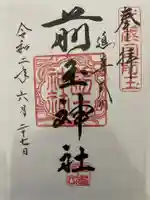 奉拝
延喜式内
前玉神社
令和二年六月二十七日